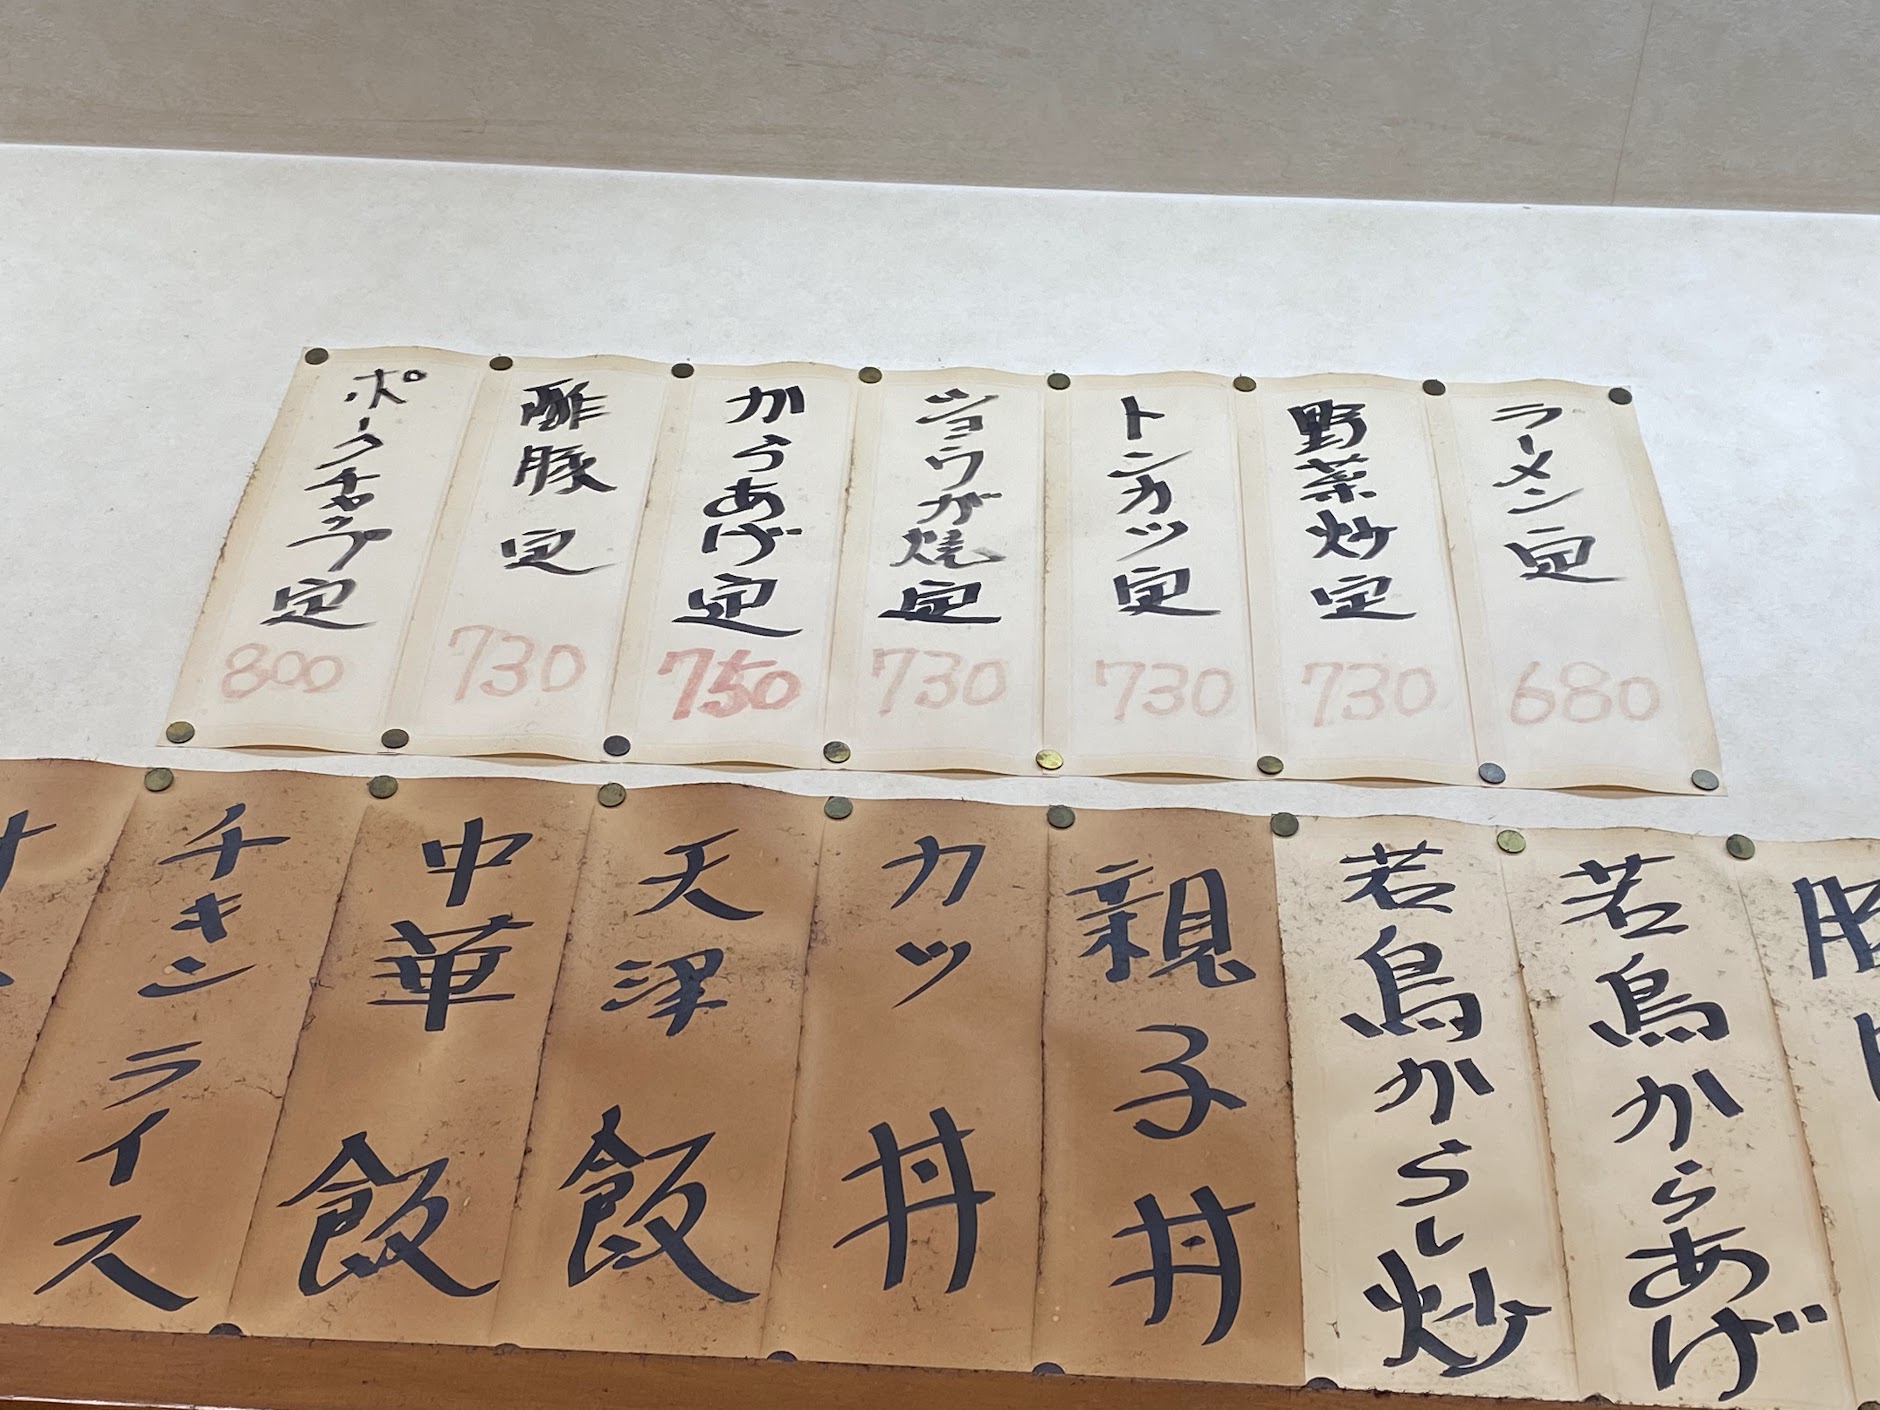 ラーメン定
680
野菜炒定
730
トンカツ定
730
ショウガ焼定
730
からあげ定
750
酢豚定
730
ポークチャップ定
800
若鳥からあげ
若鳥からし炒
親子丼
カツ丼
天津飯
中華飯
チキンライス